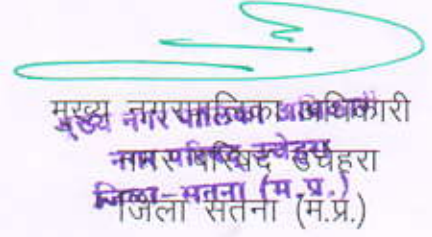 मुख्य नगरपालिका अधिकारी
नगर परिषद उचेहरा
जिला सतना (म.प्र.)
मुख्य नगर पालिका अधिकारी
नगर परिषद उचेहरा
जिला-सतना (म.प्र.)